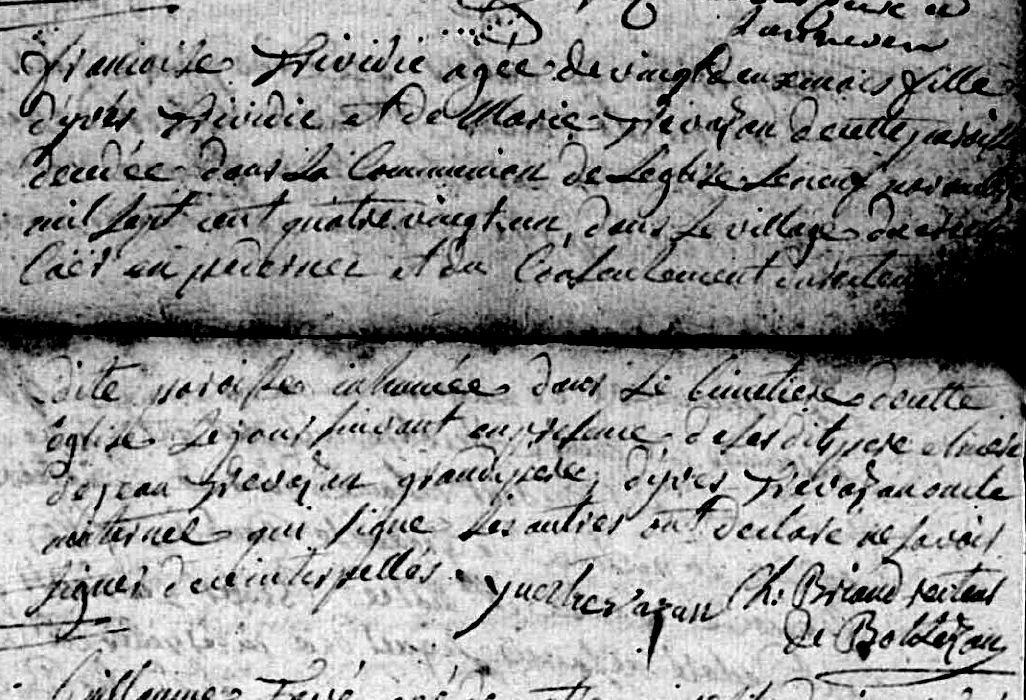 Lanneven
françoise Prividic agée de vingt deux mois fille
d'yves Prividic et de Marie Trevazan de cette paroisse
decedée dans la Communion de L'eglise le neuf
mil sept cent quatre vingt un, dans le village
en et du Consentement
dite paroisse inhumée dans le Cimetiere de cette
église le jour suivant en presence de ses dits pere et mere
de jean Trevazan grand pere, d'yves Trevazan oncle
maternel qui signe les autres ont declaré ne savoir
signer de ce interpellés.
yves trevazan Ch. Briand recteur
de Botlézan
Guillaume